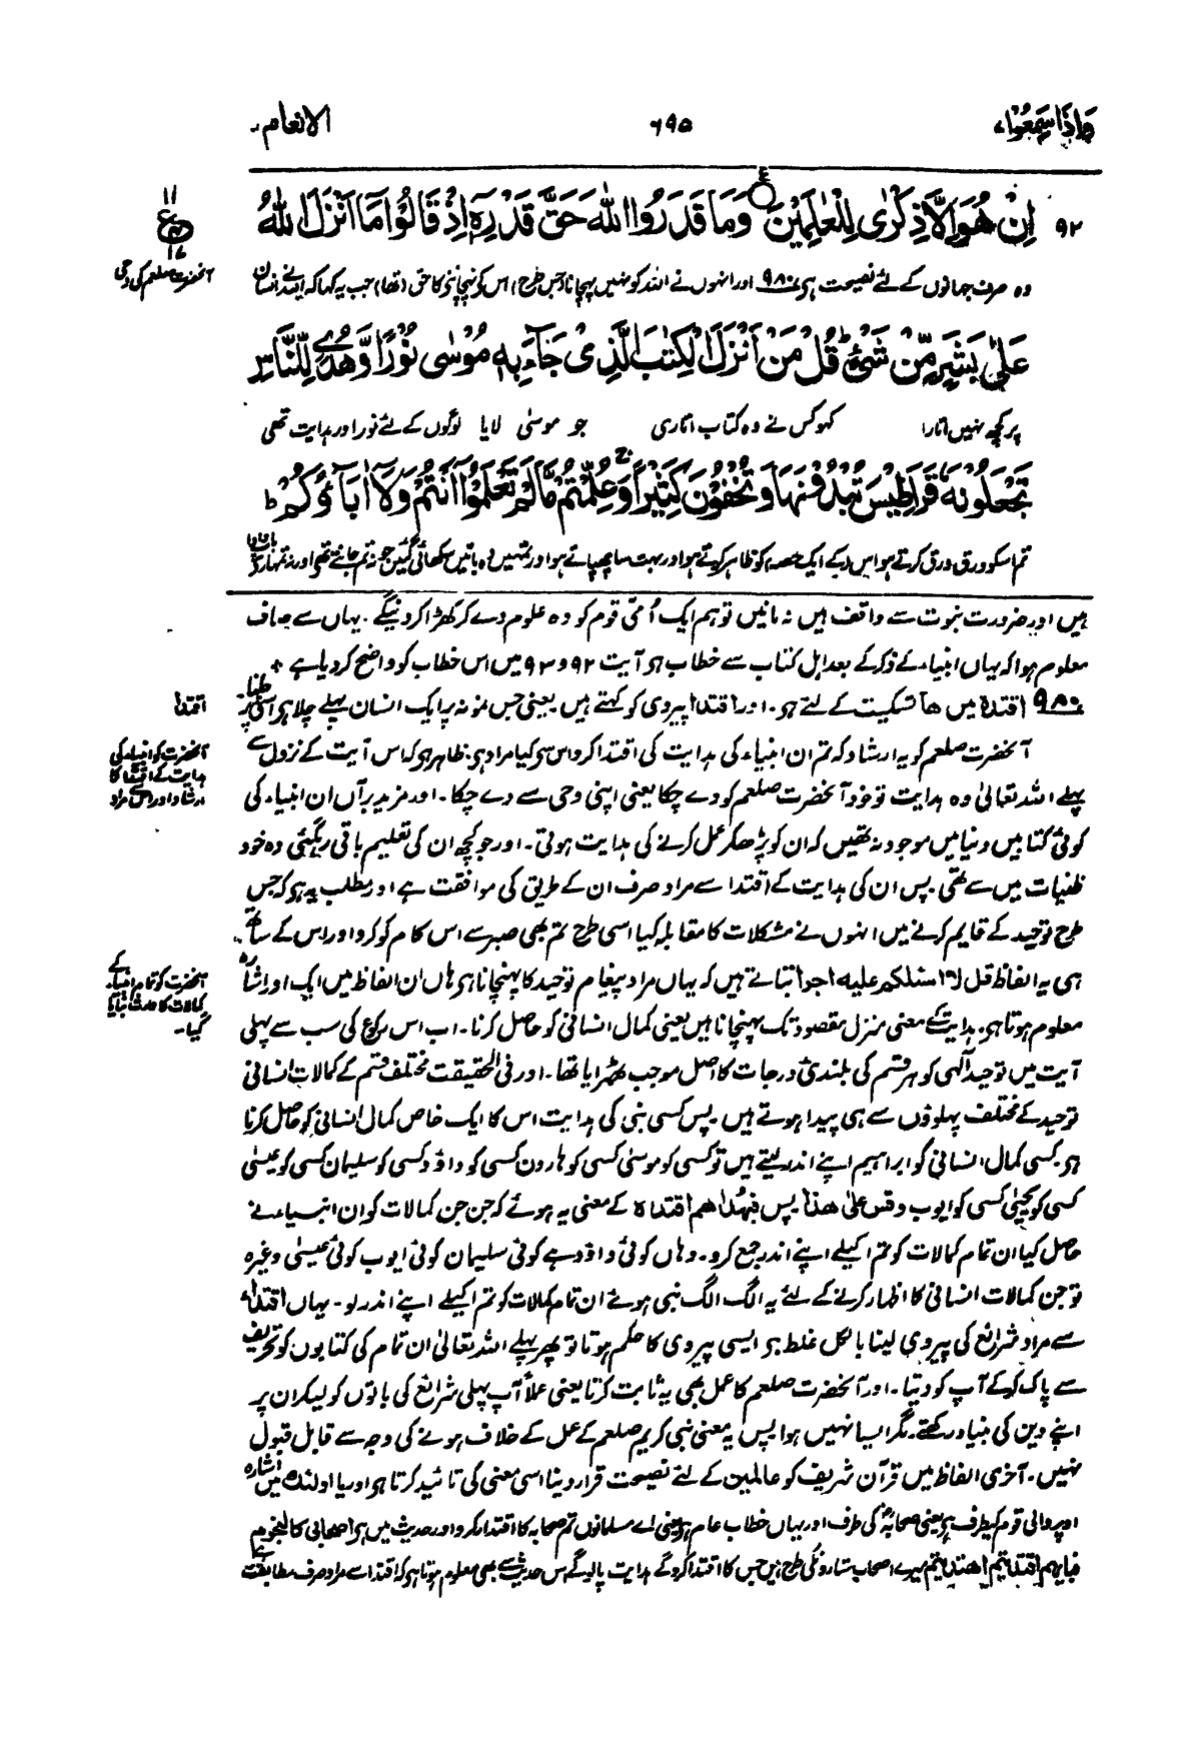 وَاِذَا سَمِعُوْا، ۶۹۵ الانعام۔
۹۲ اِنْ هُوَ اِلَّا ذِكْرٰى لِلْعٰلَمِيْنَ ۝ وَمَا قَدَرُوا اللّٰهَ حَقَّ قَدْرِهٖٓ اِذْ قَالُوْا مَآ اَنْزَلَ اللّٰهُ
۱۱
ع
۱۶
آنحضرت صلعم کی وحی
وہ صرف جہانوں کے لئے نصیحت ہی ۹۸۰ اور انہوں نے اللہ کو نہیں پہچانا (جس طرح) اس کو پہچاننے کا حق (تھا) جب یہ کہا کہ اللہ نے انسان
عَلٰى بَشَرٍ مِّنْ شَيْءٍ ؕ قُلْ مَنْ اَنْزَلَ الْكِتٰبَ الَّذِيْ جَآءَ بِهٖ مُوْسٰى نُوْرًا وَّهُدًى لِّلنَّاسِ
پر کچھ نہیں اتارا کہو کس نے وہ کتاب اتاری جو موسیٰ لایا لوگوں کے لئے نور اور ہدایت تھی
تَجْعَلُوْنَهٗ قَرَاطِيْسَ تُبْدُوْنَهَا وَتُخْفُوْنَ كَثِيْرًا ۚ وَعُلِّمْتُمْ مَّا لَمْ تَعْلَمُوْٓا اَنْتُمْ وَلَآ اٰبَآؤُكُمْ ؕ
تم اسکو ورق ورق کرتے ہو اس کے ایک حصہ کو ظاہر کرتے ہو اور بہت سا چھپاتے ہو اور تمہیں وہ باتیں سکھائی گئیں جو نہ تم جانتے تھے اور نہ تمہارے باپ دادا
ہیں اور ضرورت نبوت سے واقف ہیں نہ مانیں تو ہم ایک اُمّی قوم کو وہ علوم دے کر کھڑا کر دینگے۔ یہاں سے صاف
معلوم ہوا کہ یہاں انبیاء کے ذکر کے بعد اہل کتاب سے خطاب ہو آیت ۹۲ و ۹۳ میں اس خطاب کو واضح کر دیا ہے +
۹۸۰ اقتدہ میں ھا سکیت کے لئے ہو۔ اور اقتدا پیروی کو کہتے ہیں یعنی جس نمونہ پر ایک انسان پہلے چلا ہو اس پر چلنا۔
اقتدا
آنحضرت صلعم کو یہ ارشاد کہ تم ان انبیاء کی ہدایت کی اقتدا کرو اس سے کیا مراد ہو، ظاہر ہو کہ اس آیت کے نزول سے
آنحضرت کو انبیاء کی ہدایت کے اقتدا کا ارشاد اور اس سے مراد
پہلے اللہ تعالیٰ وہ ہدایت تو خود آنحضرت صلعم کو دے چکا یعنی اپنی وحی سے دے چکا۔ اور مزید برآں ان انبیاء کی
کوئی کتابیں دنیا میں موجود نہ تھیں کہ ان کو پڑھکر عمل کرنے کی ہدایت ہوتی۔ اور جو کچھ ان کی تعلیم باقی رہ گئی وہ خود
ظنیات میں سے تھی۔ پس ان کی ہدایت کے اقتدا سے مراد صرف ان کے طریق کی موافقت ہے اور مطلب یہ ہو کہ جس
طرح توحید کے قایم کرنے میں انہوں نے مشکلات کا مقابلہ کیا اسی طرح تم بھی صبر سے اس کام کو کرو اور اس کے ساتھ
ہی یہ الفاظ قل لا اسئلکم علیه اجرا بتاتے ہیں کہ یہاں مراد پیغام توحید کا پہنچانا ہو ہاں ان الفاظ میں ایک اور اشارہ
آنحضرت کو تمام انبیاء کے کمالات کا وارث بنایا گیا۔
معلوم ہوتا ہو۔ ہدایت کے معنی منزل مقصود تک پہنچانا ہیں یعنی کمال انسانی کو حاصل کرنا۔ اب اس رکوع کی سب سے پہلی
آیت میں توحید الٰہی کو ہر قسم کی بلندئ درجات کا اصل موجب ٹھہرایا تھا۔ اور فی الحقیقت مختلف قسم کے کمالات انسانی
توحید کے مختلف پہلوؤں سے ہی پیدا ہوتے ہیں۔ پس کسی نبی کی ہدایت اس کا ایک خاص کمال انسانی کو حاصل کرنا
ہو۔ کسی کمال انسانی کو ابراہیم اپنے اندر لیتے ہیں تو کسی کو موسیٰ کسی کو ہارون کسی کو داؤد کسی کو سلیمان کسی کو عیسیٰ
کسی کو یحییٰ کسی کو ایوب وقس علی ھذا۔ پس فبھدٰھم اقتدہ کے معنی یہ ہوئے کہ جن جن کمالات کو ان انبیاء نے
حاصل کیا ان تمام کمالات کو تم اکیلے اپنے اندر جمع کرو۔ وہاں کوئی داؤد ہے کوئی سلیمان کوئی ایوب کوئی عیسیٰ وغیرہ
تو جن کمالات انسانی کا اظہار کرنے کے لئے یہ الگ الگ نبی ہوئے ان تمام کمالات کو تم اکیلے اپنے اندر لو۔ یہاں اقتدا
سے مراد شرائع کی پیروی لینا بالکل غلط ہو ایسی پیروی کا حکم ہوتا تو پھر پہلے اللہ تعالیٰ ان تمام کی کتابوں کو تحریف
سے پاک کرکے آپ کو دیتا۔ اور آنحضرت صلعم کا عمل بھی یہ ثابت کرتا یعنی عملاً آپ پہلی شرائع کی باتوں کو لیکر ان پر
اپنے دین کی بنیاد رکھتے۔ مگر ایسا نہیں ہوا پس یہ معنی نبی کریم صلعم کے عمل کے خلاف ہونے کی وجہ سے قابل قبول
نہیں۔ آخری الفاظ میں قرآن شریف کو عالمین کے لئے نصیحت قرار دینا اسی معنی کی تائید کرتا ہو اور یا اولئک میں اشارہ
اوپر والی قوم کیطرف ہو یعنی صحابہؓ کی طرف اور یہاں خطاب عام ہو یعنی اے مسلمانوں تم صحابہ کا اقتدا کرو اور حدیث میں ہو اصحابی کالنجوم
فبایھم اقتدیتم اھتدیتم میرے اصحاب ستاروں کی طرح ہیں جس کا اقتدا کرو گے ہدایت پالو گے اس حدیث سے بھی معلوم ہوتا ہو کہ اقتدا سے مراد صرف مطابقت ہے